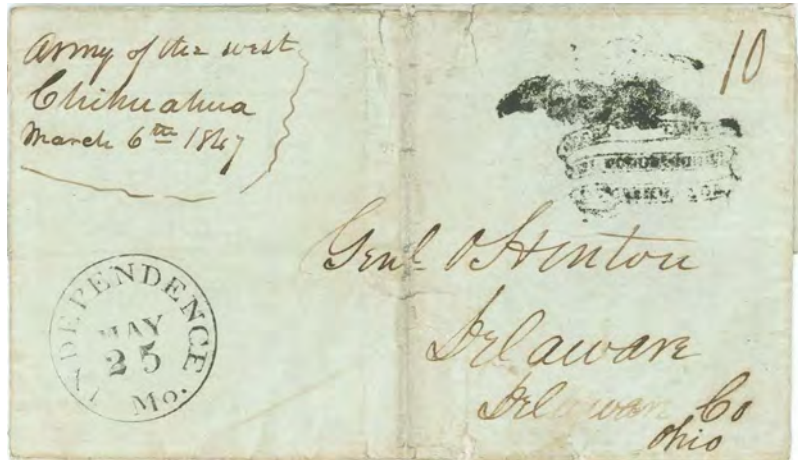 Army of the west
Chihuahua
March 6th 1847
10
Genl O Hinton
Delaware
Delaware Co
Ohio
INDEPENDENCE
MAY
25
Mo.